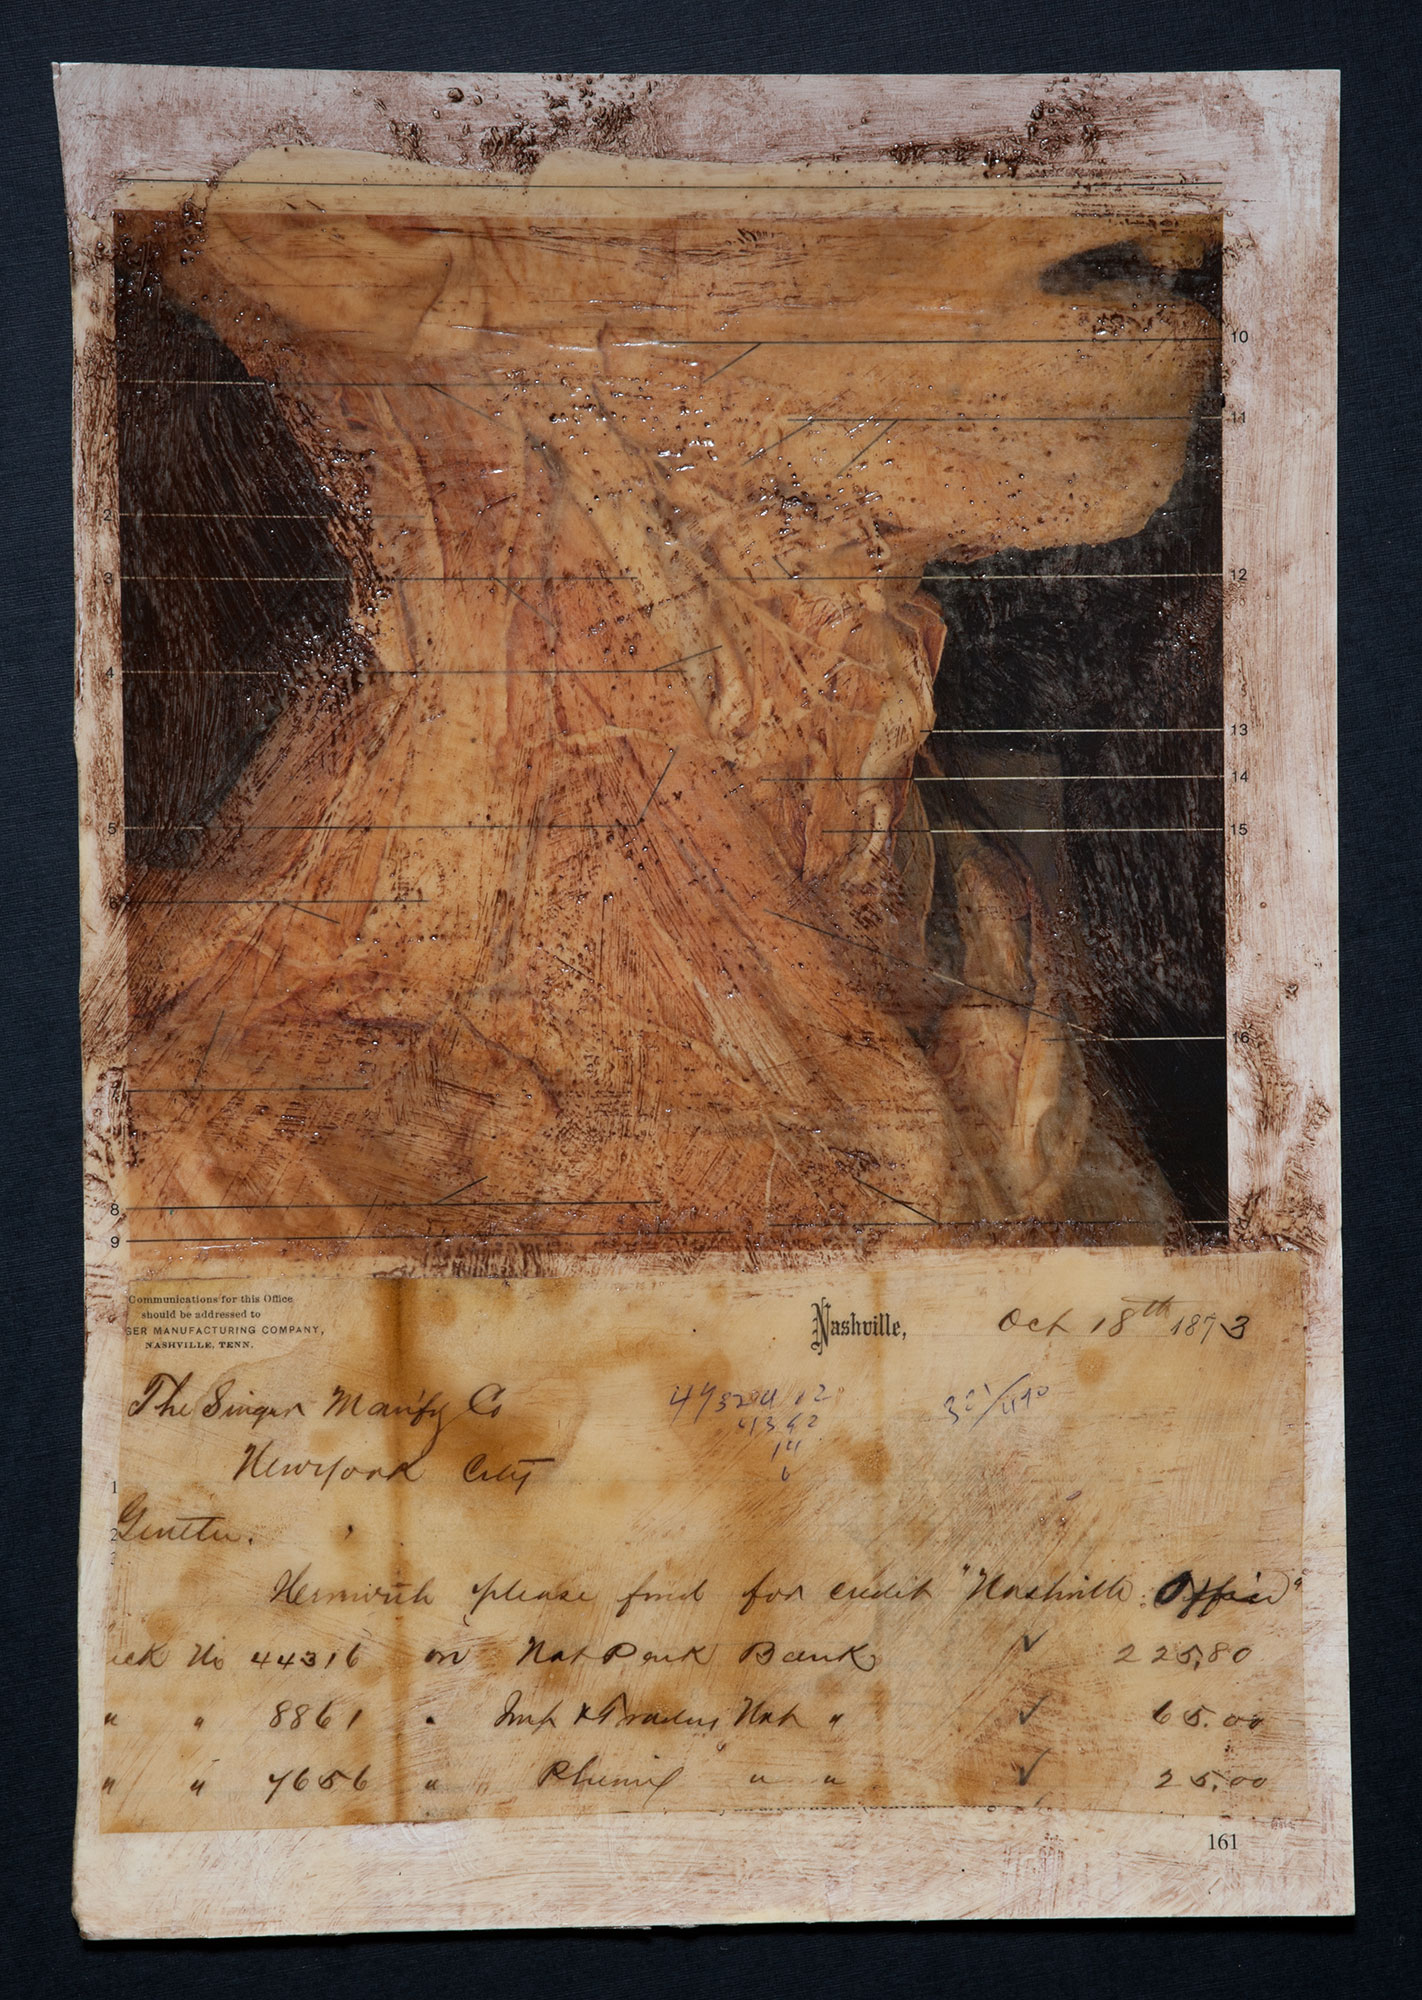 10
11
2
3
12
4
13
14
5
15
6
16
7
8
9
Communications for this Office
should be addressed to
GER MANUFACTURING COMPANY,
NASHVILLE, TENN.
Nashville, Oct 18th 1873
The Singer Manfg Co
New York City
1
Gentn.
2
3
Herewith please find for credit "Nashville Office"
eck No 44316 on Nat Park Bank ✓ 225.80
" " 8861 " Imp & Traders Nat " ✓ 65.00
" " 7656 " Phenix " " ✓ 25.00
161